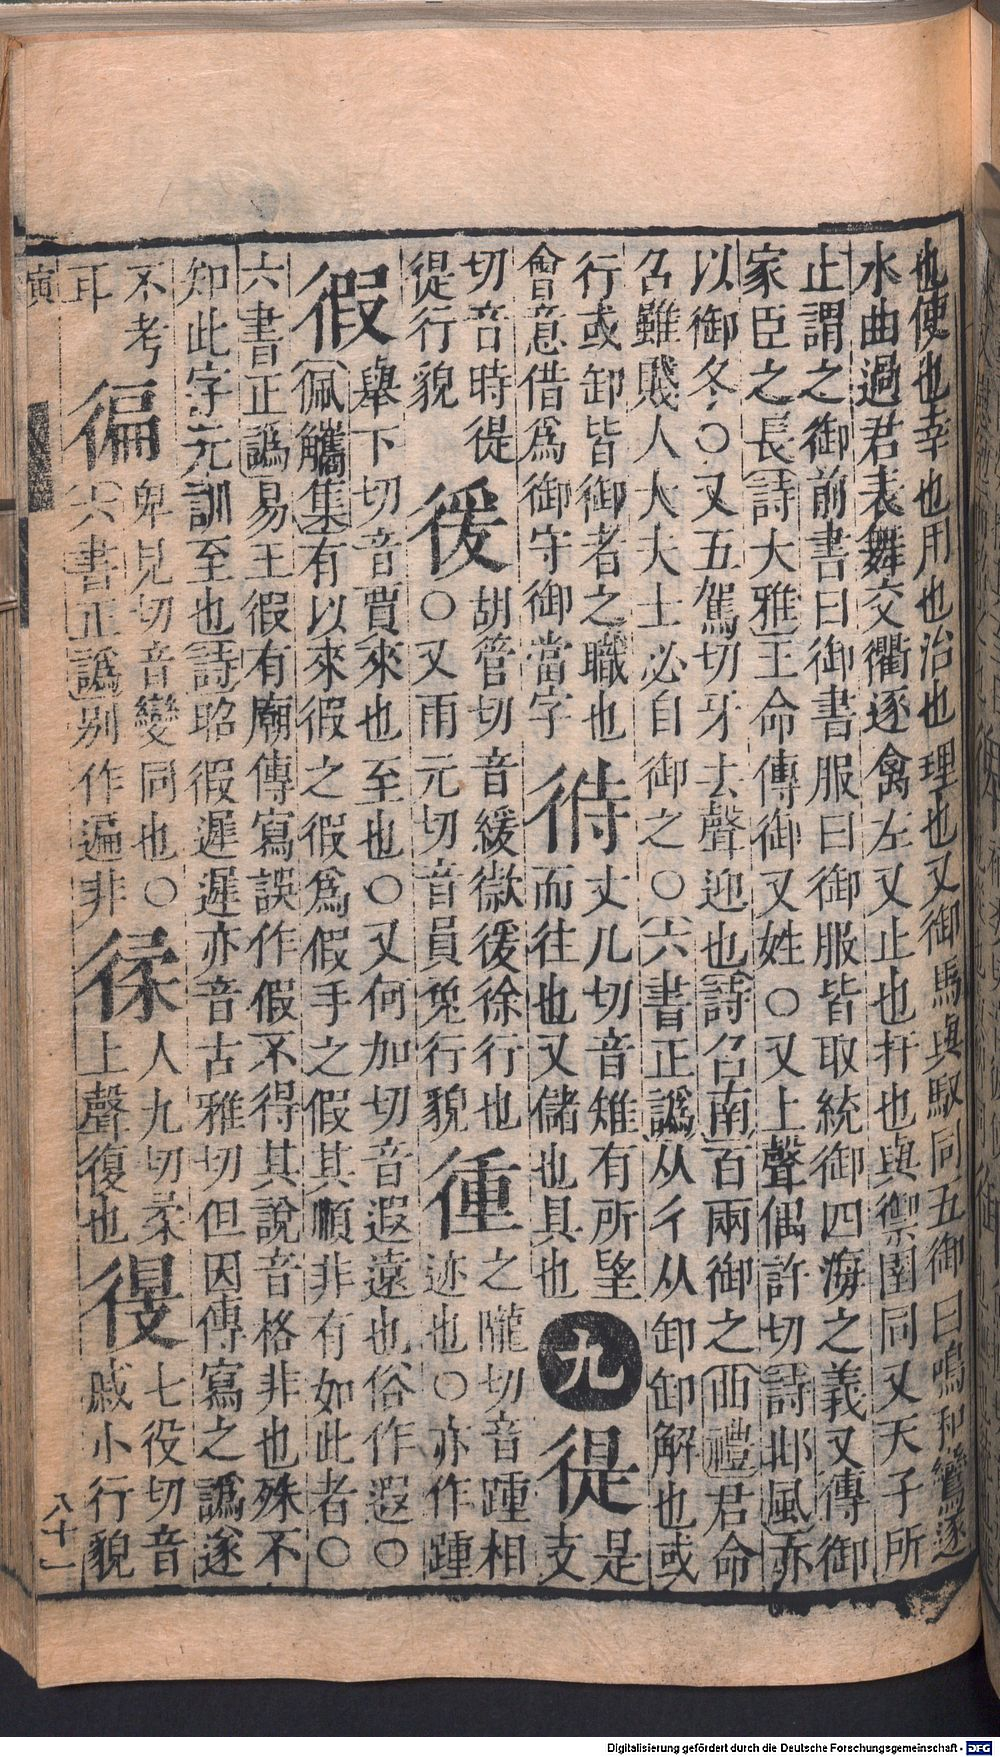 也使也幸也用也治也理也又御馬與馭同五御曰鳴和鸞逐
水曲過君表舞交衢逐禽左又止也扞也與禦圉同又天子所
止謂之御前書曰御書服曰御服皆取統御四海之義又傳御
家臣之長詩大雅王命傳御又姓○又上聲偶許切詩邶風亦
以御冬○又五駕切牙去聲迎也詩召南百兩御之曲禮君命
召雖賤人大夫士必自御之○六書正譌从彳从卸卸解也或
行或卸皆御者之職也
會意借爲御守御當字
偫
丈几切音雉有所望
而往也又儲也具也
九
徥
是支
切音時徥
徥行貌
徲
胡管切音緩徲徲徐行也
○又雨元切音員㣪行貌
徸
之隴切音踵相
迹也○亦作踵
徦
舉下切音賈來也至也○又何加切音遐遠也俗作遐○
佩觿集有以來徦之徦爲假手之假其順非有如此者○
六書正譌易王徦有廟傳寫誤作假不得其說音格非也殊不
知此字元訓至也詩昭徦遲遲亦音古雅切但因傳寫之譌遂
不考
耳
徧
卑見切音變同也○
六書正譌別作遍非
徖
人九切柔
上聲復也
㣤
七役切音
戚小行貌
寅
八十一
Digitalisierung gefördert durch die Deutsche Forschungsgemeinschaft - DFG